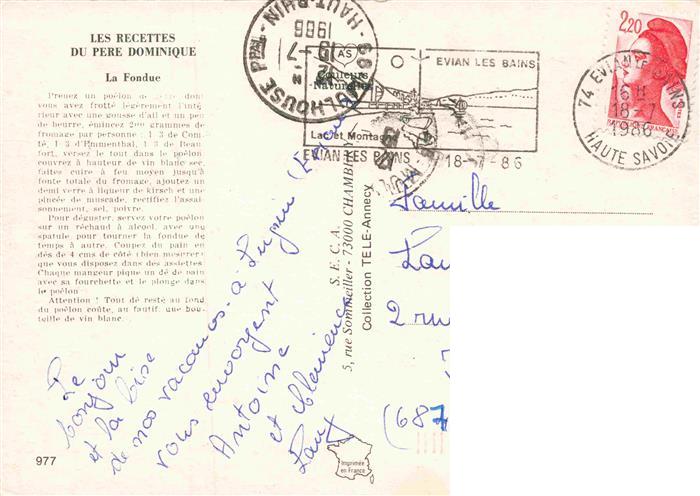 LES RECETTES
DU PERE DOMINIQUE
La Fondue
Prenez un poêlon de terre dont
vous avez frotté légèrement l'inté
rieur avec une gousse d'ail et un peu
de beurre, émincez 200 grammes de
fromage par personne : 1 3 de Com
té, 1 3 d'Emmenthal, 1 3 de Beau
fort, versez le tout dans le poêlon
couvrez à hauteur de vin blanc sec
faites cuire à feu moyen jusqu'à
fonte totale du fromage, ajoutez un
demi verre à liqueur de kirsch et une
pincée de muscade, rectifiez l'assai
sonnement, sel, poivre.
Pour déguster, servez votre poêlon
sur un réchaud à alcool, avec une
spatule pour tourner la fondue de
temps à autre. Coupez du pain en
dés de 4 cms de côté (bien mesurer)
que vous disposez dans des assiettes
Chaque mangeur pique un dé de pain
avec sa fourchette et le plonge dans
le poêlon
Attention ! Tout dé resté au fond
du poêlon coûte, au fautif, une bou
teille de vin blanc.
977
Le
bonjour
et la bise
de nos vacances à Lugrin
vous envoient
Antoine
et Clémence
S. E. C. A.
5, rue Sommeiller - 73000 CHAMBERY
Collection TELE-Annecy
Imprimée
en France
68 MULHOUSE PPAL
HAUT-RHIN
19-7
1986
Couleurs
Naturelles
EVIAN LES BAINS
Lac et Montagne
EVIAN LES BAINS 18-7-86
74 EVIAN LES BAINS
16 H
18-7
1986
HAUTE SAVOIE
2,20
Famille
Lau
2 rue
(687